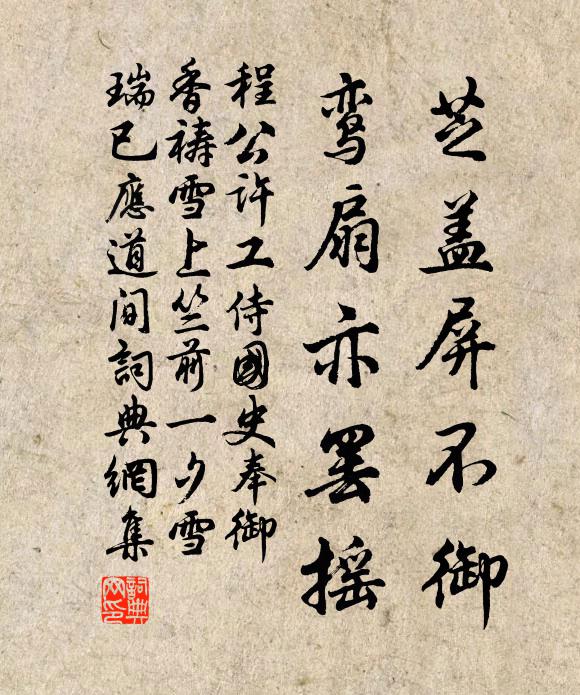 芝盖屏不御
鸾扇亦罢摇
程公许工侍國史奉御
香禱雪上竺前一夕雪
瑞已應道间詞典網集
詞典网印